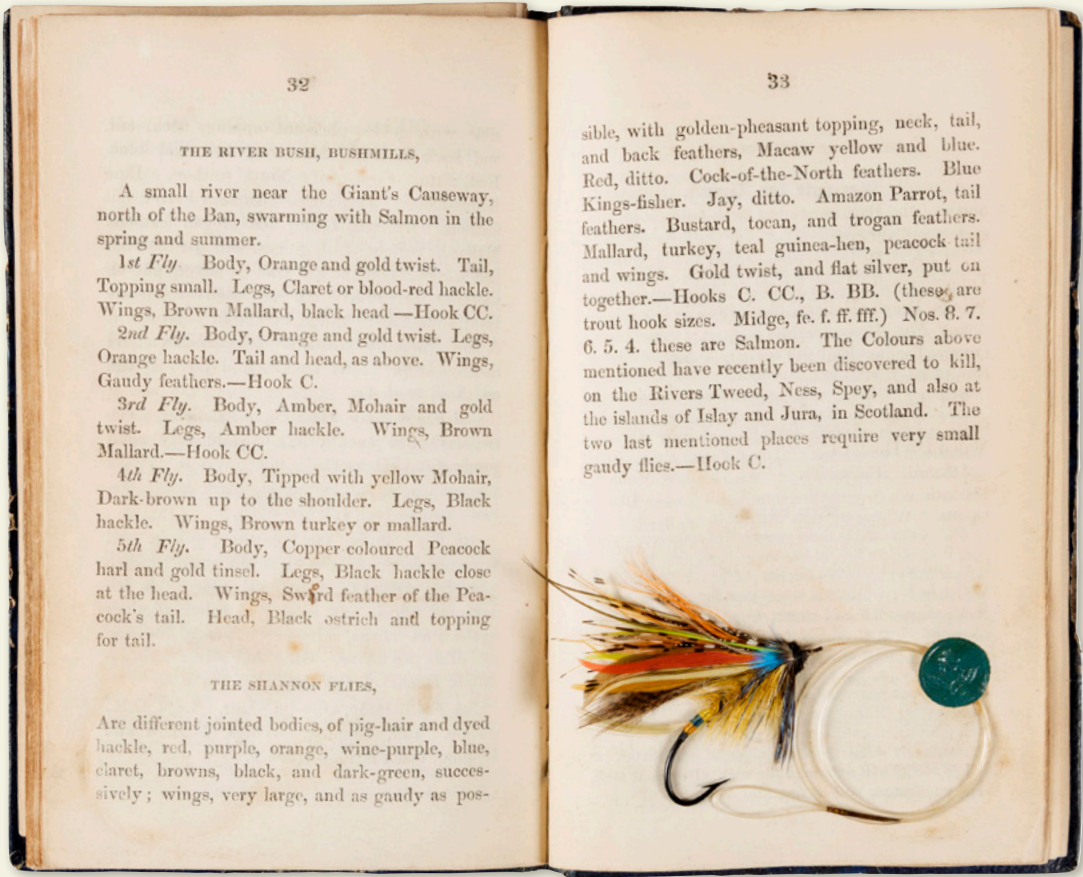 32
THE RIVER BUSH, BUSHMILLS,
A small river near the Giant's Causeway,
north of the Ban, swarming with Salmon in the
spring and summer.
1st Fly. Body, Orange and gold twist. Tail,
Topping small. Legs, Claret or blood-red hackle.
Wings, Brown Mallard, black head—Hook CC.
2nd Fly. Body, Orange and gold twist. Legs,
Orange hackle. Tail and head, as above. Wings,
Gaudy feathers.—Hook C.
3rd Fly. Body, Amber, Mohair and gold
twist. Legs, Amber hackle. Wings, Brown
Mallard.—Hook CC.
4th Fly. Body, Tipped with yellow Mohair,
Dark-brown up to the shoulder. Legs, Black
hackle. Wings, Brown turkey or mallard.
5th Fly. Body, Copper coloured Peacock
harl and gold tinsel. Legs, Black hackle close
at the head. Wings, Sword feather of the Pea-
cock's tail. Head, Black ostrich and topping
for tail.
THE SHANNON FLIES,
Are different jointed bodies, of pig-hair and dyed
hackle, red, purple, orange, wine-purple, blue,
claret, browns, black, and dark-green, succes-
sively; wings, very large, and as gaudy as pos-
33
sible, with golden-pheasant topping, neck, tail,
and back feathers, Macaw yellow and blue.
Red, ditto. Cock-of-the-North feathers. Blue
Kings-fisher. Jay, ditto. Amazon Parrot, tail
feathers. Bustard, tocan, and trogan feathers.
Mallard, turkey, teal guinea-hen, peacock tail
and wings. Gold twist, and flat silver, put on
together.—Hooks C. CC., B. BB. (these are
trout hook sizes. Midge, fe. f. ff. fff.) Nos. 8. 7.
6. 5. 4. these are Salmon. The Colours above
mentioned have recently been discovered to kill,
on the Rivers Tweed, Ness, Spey, and also at
the islands of Islay and Jura, in Scotland. The
two last mentioned places require very small
gaudy flies.—Hook C.